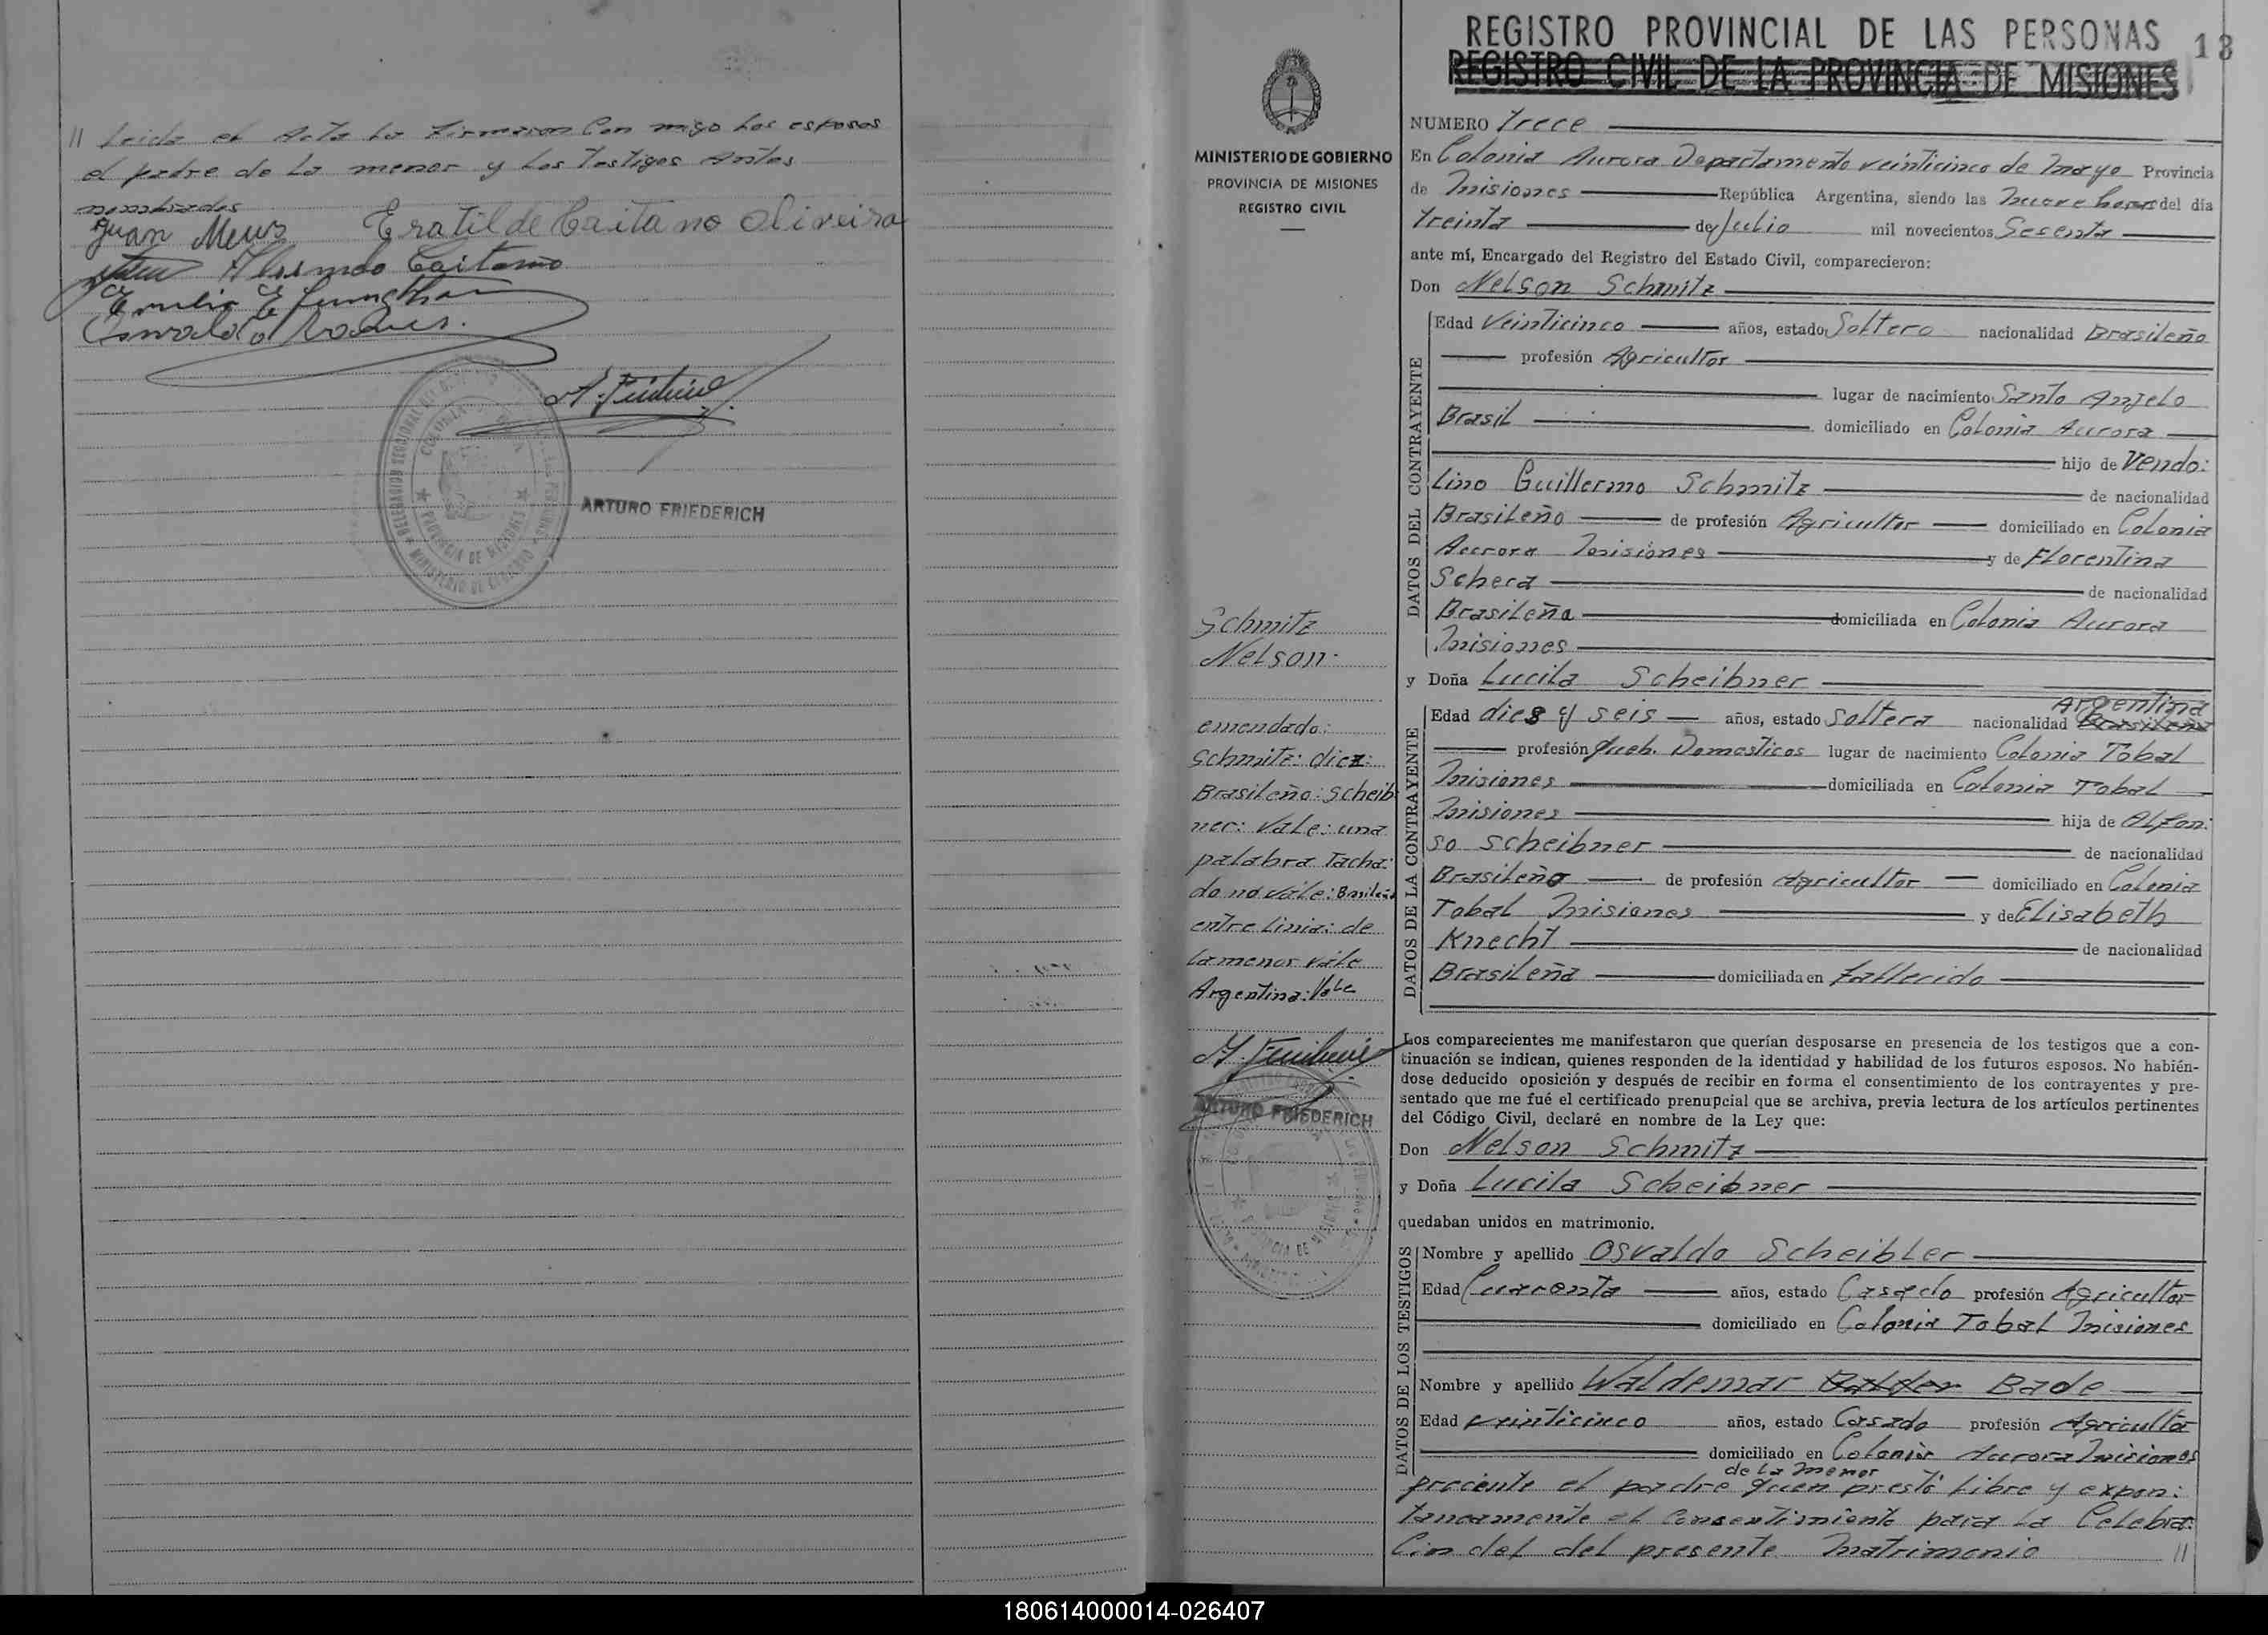 // Leida el Acta La Firmaron Con migo Los esposos
el padre de La menor y Los Testigos Antes
nombrados
Juan Meus Eratilde Caitano Oliveira
Caitano
Emilio E
Osvaldo
A. Friederich
ARTURO FRIEDERICH
DELEGACION SECCIONAL
PROVINCIA DE MISIONES
MINISTERIO DE GOBIERNO
MINISTERIO DE GOBIERNO
PROVINCIA DE MISIONES
REGISTRO CIVIL
Schmitz
Nelson
emendado:
Schmitz: diez:
Brasileño: Scheib
ner: Vale: una
palabra Tacha:
do no vale: Brasileña
entre Linia: de
La menor vale
Argentina: Vale
A. Friederich
ARTURO FRIEDERICH
REGISTRO PROVINCIAL DE LAS PERSONAS 13
REGISTRO CIVIL DE LA PROVINCIA DE MISIONES
NUMERO Trece
En Colonia Aurora Departamento veinticinco de Mayo Provincia
de Misiones República Argentina, siendo las Nueve horas del día
treinta de Julio mil novecientos Sesenta
ante mí, Encargado del Registro del Estado Civil, comparecieron:
Don Nelson Schmitz
DATOS DEL CONTRAYENTE
Edad Veinticinco años, estado Soltero nacionalidad Brasileño
profesión Agricultor
lugar de nacimiento Santo Angelo
Brasil domiciliado en Colonia Aurora
hijo de Vendo:
Lino Guillermo Schmitz de nacionalidad
Brasileño de profesión Agricultor domiciliado en Colonia
Aurora Misiones y de Florentina
Schera de nacionalidad
Brasileña domiciliada en Colonia Aurora
Misiones
y Doña Lucila Scheibner
DATOS DE LA CONTRAYENTE
Argentina
Edad diez y seis años, estado Soltera nacionalidad Brasileña
profesión Queh. Domesticos lugar de nacimiento Colonia Tobal
Misiones domiciliada en Colonia Tobal
Misiones hija de Alfon:
so Scheibner de nacionalidad
Brasileño de profesión Agricultor domiciliado en Colonia
Tobal Misiones y de Elisabeth
Knecht de nacionalidad
Brasileña domiciliada en Fallecido
Los comparecientes me manifestaron que querían desposarse en presencia de los testigos que a con-
tinuación se indican, quienes responden de la identidad y habilidad de los futuros esposos. No habién-
dose deducido oposición y después de recibir en forma el consentimiento de los contrayentes y pre-
sentado que me fué el certificado prenupcial que se archiva, previa lectura de los artículos pertinentes
del Código Civil, declaré en nombre de la Ley que:
Don Nelson Schmitz
y Doña Lucila Scheibner
quedaban unidos en matrimonio.
DATOS DE LOS TESTIGOS
Nombre y apellido Osvaldo Scheibler
Edad Cuarenta años, estado Casado profesión Agricultor
domiciliado en Colonia Tobal Misiones
Nombre y apellido Waldemar Bade
Edad veinticinco años, estado Casado profesión Agricultor
domiciliado en Colonia Aurora Misiones
de La menor
preciente el padre quien prestó Libre y expon:
taneamente el Consentimiento para La Celebra:
Cin del del presente Matrimonio //
180614000014-026407